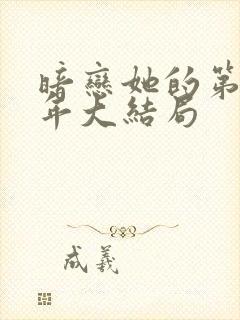 暗戀她的第
年大結局
成羲